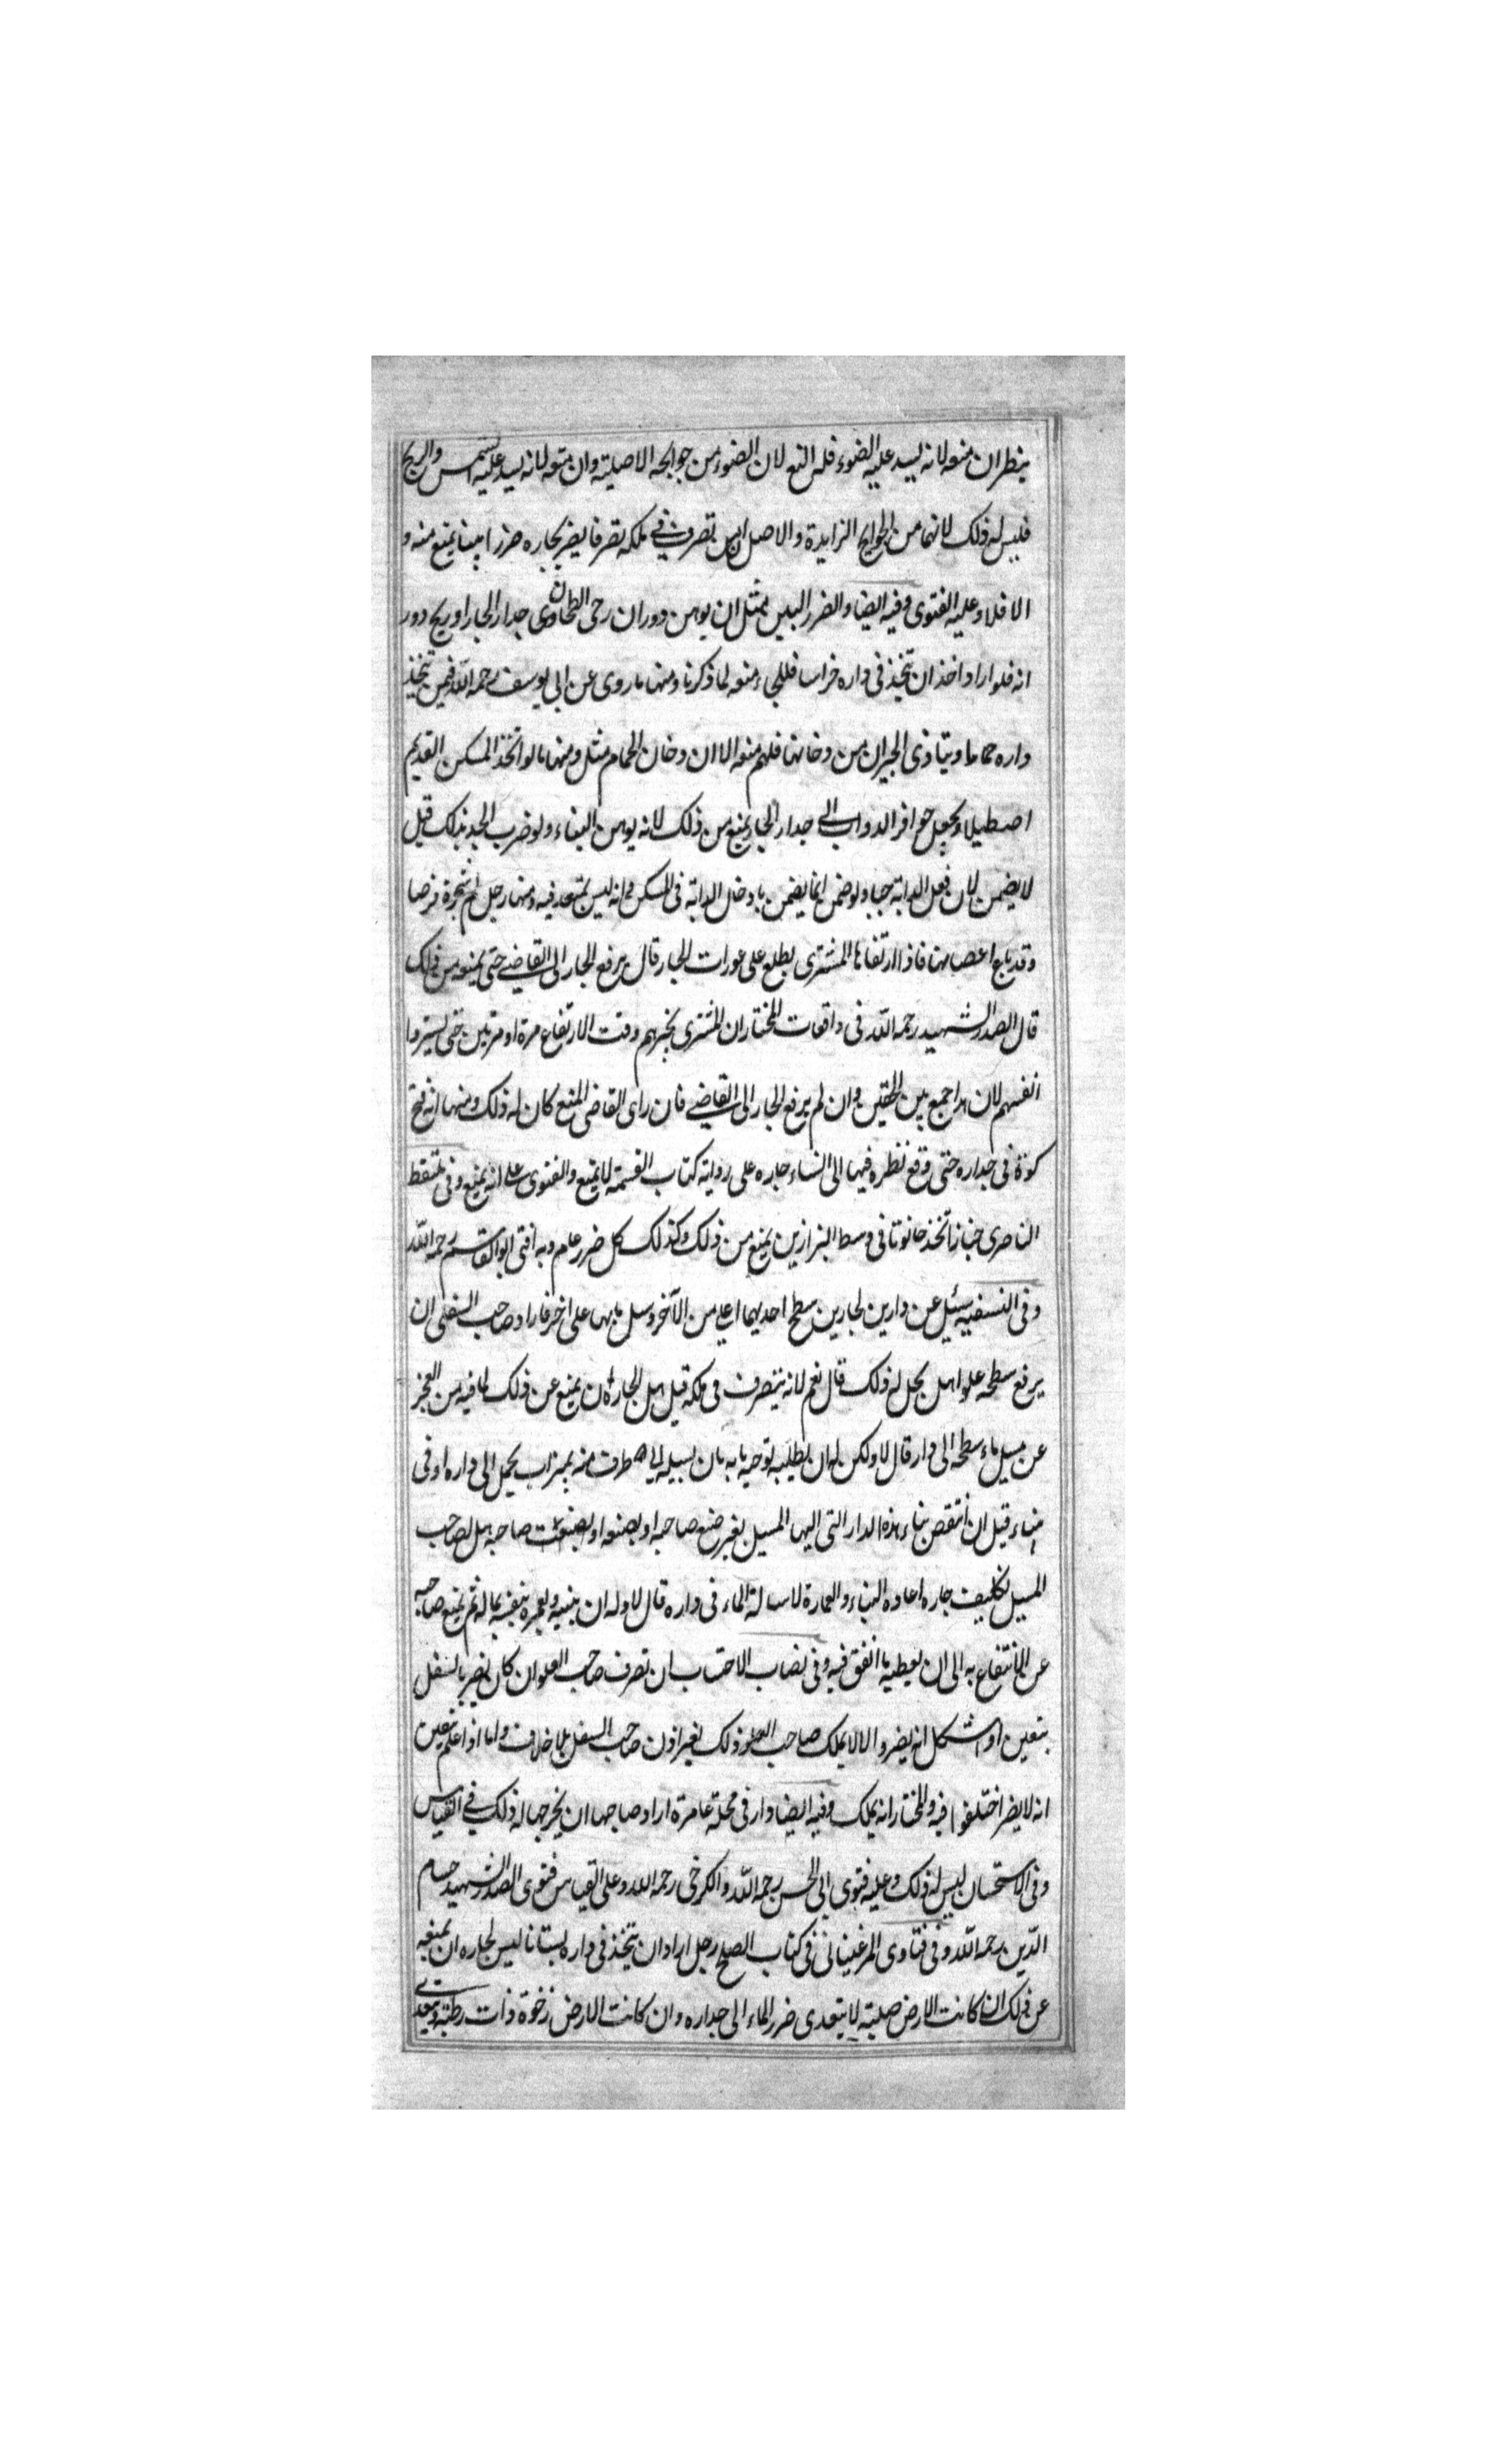 ينظر ان منعه لانه يسد عليه الضوء فله المنع لان الضوء من حوايجه الاصلية وان منعه لانه يسد عليه الشمس والريح
فليس له ذلك لانهما من الحوايج الزايدة والاصل ان من تصرف في ملكه تصرفا يضر بجاره ضررا بينا يمنع منه و
الا فلا وعليه الفتوى وفيه ايضا والضرر البين بمثل ان يوهن دوران رحى الطحان جدار الجار او ريح دور
انه فلو اراد احد ان يتخذ في داره خراسا فللجار منعه لما ذكرنا ومنها ما روى عن ابي يوسف رحمه الله فيمن يتخذ
داره حماما ويتاذى الجيران من دخانها فلهم منعه الا ان دخان الحمام مثل ومنها ما لو اتخذ المسكن القديم
اصطبلا ويجعل حوافر الدواب الى جدار الجار يمنع من ذلك لانه يوهن البناء ولو خرب الجدر بذلك قيل
لا يضمن لان فعل الدابة جبار ولو ضمن انما يضمن بادخال الدابة في المسكن وانه ليس بمتعد فيه ومنها رجل له شجرة فرصاد
وقد باع اغصانها فاذا ارتقاها المشتري يطلع على عورات الجار قال يرفع الجار الى القاضي حتى يمنعه من ذلك
قال الصدر الشهيد رحمه الله في واقعات المختار ان المشتري يخبرهم وقت الارتفاع مرة او مرتين حتى يستروا
انفسهم لان هذا جمع بين الحقين وان لم يرفع الجار الى القاضي فان راى القاضي المنع كان له ذلك ومنها انه فتح
كوة في جداره حتى وقع نظره فيها الى النساء جاره على رواية كتاب القسمة لا يمنع والفتوى على انه يمنع وفي ملتقط
الناصرى خباز اتخذ حانوتا في وسط البزازين يمنع من ذلك وكذلك كل ضرر عام وبه افتى ابو القاسم رحمه الله
وفي النسفية سئل عن دارين لجارين سطح احديهما اعلى من الآخر ومسيل مايها على اخر فاراد صاحب السفلى ان
يرفع سطحه علوا هل يحل له ذلك قال نعم لانه يتصرف في ملكه قيل هل للجار ان يمنع عن ذلك لما فيه من العجز
عن مسيل ماء سطحه الى دار قال لا ولكن له ان يطلبه بان يسيله الى طرف منه بميزاب يحمل الى داره او في
بناء قيل ان انتقض بناء هذه الدار التي اليها المسيل بغير صنع صاحبه او بصنعه صاحبه هل لصاحب
المسيل تكليف جاره اعاده البناء والعمارة لاسالة الماء في داره قال لا وله ان يبنيه ويعمره بنفسه بماله ثم يمنع صاحبه
عن الانتفاع به الى ان يعطيه ما انفق فيه وفي نصاب الاحتساب ان تصرف صاحب العلو ان كان يضر بالسفل
بتعين او اشكل انه يضر والا لا يملك صاحب العلو ذلك بغير اذن صاحب السفل بلا خلاف واما اذا علم بتعين
انه لا يضر اختلفوا فيه والمختار انه يملك وفيه ايضا دار في محلة عامرة اراد صاحبها ان يخربها له ذلك في القياس
وفي الاستحسان ليس له ذلك وعليه فتوى ابي الحسن رحمه الله والكرخى رحمه الله وعلى القياس فتوى الصدر الشهيد حسام
الدين رحمه الله وفي فتاوى المرغينانى في كتاب الصلح رجل اراد ان يتخذ في داره بستانا ليس لجاره ان يمنعه
عن ذلك ان كانت الارض صلبة لا يتعدى ضرر الماء الى جداره وان كانت الارض رخوة ذات رطبة ويتعدى